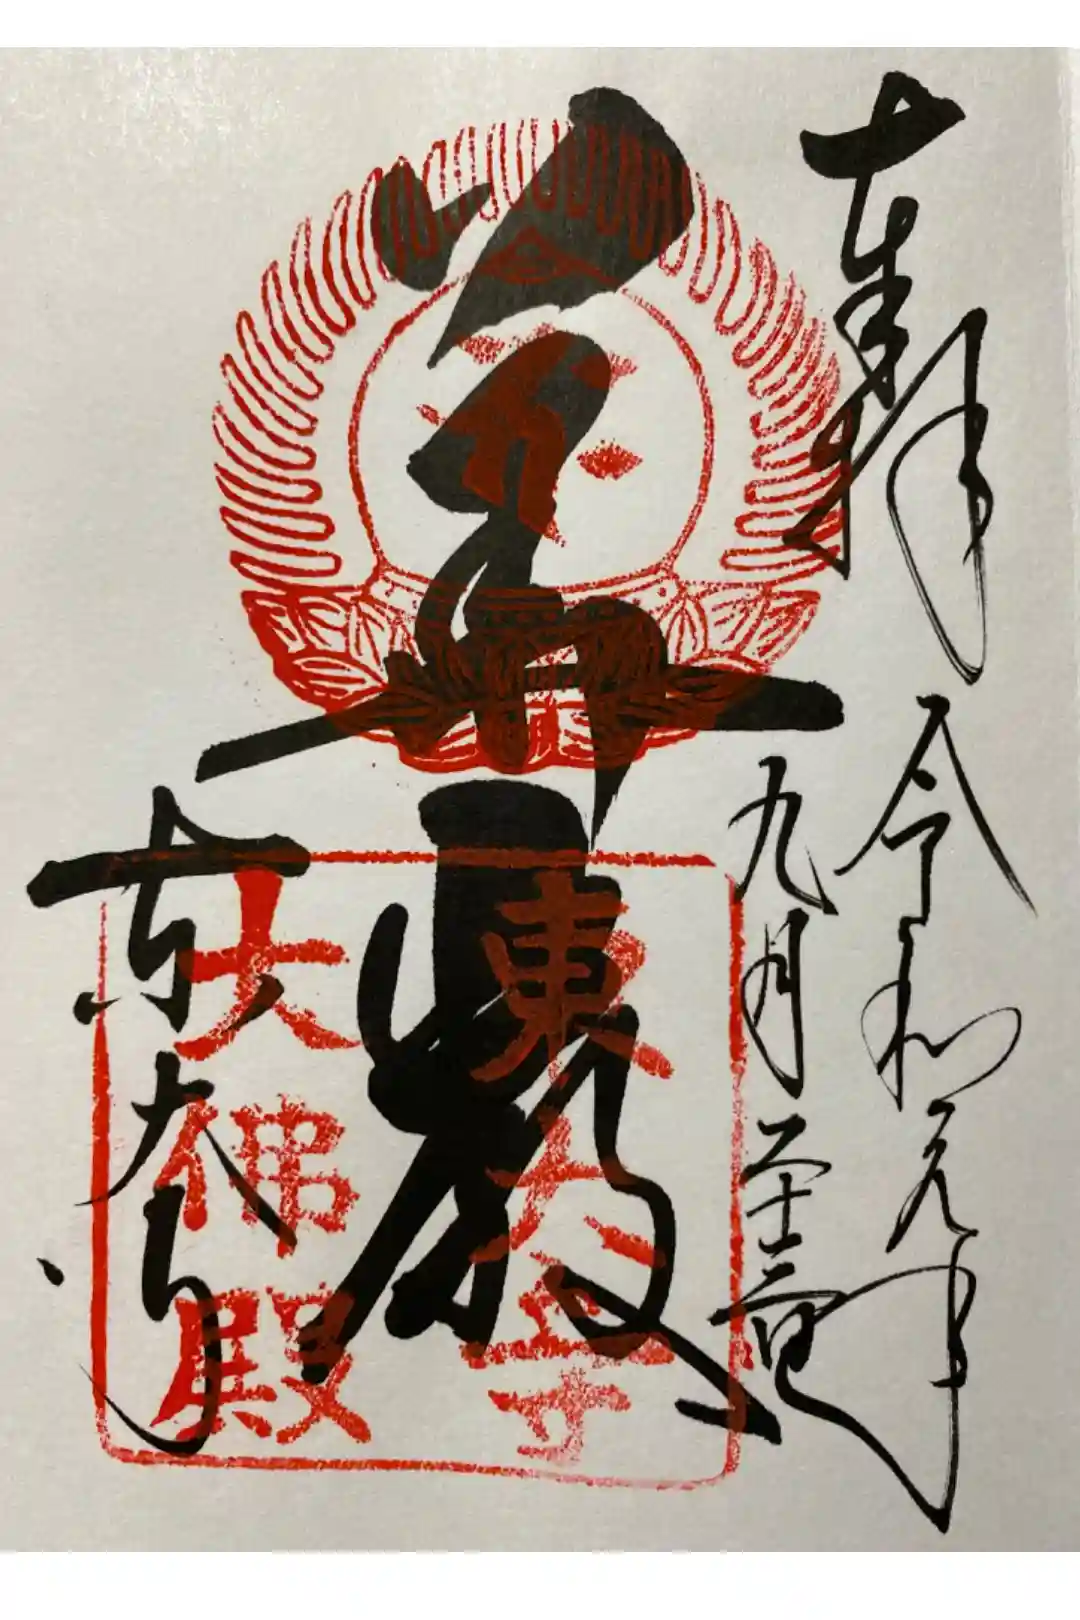 奉拝
令和元年
九月
華厳
東大寺
東大寺
大佛殿